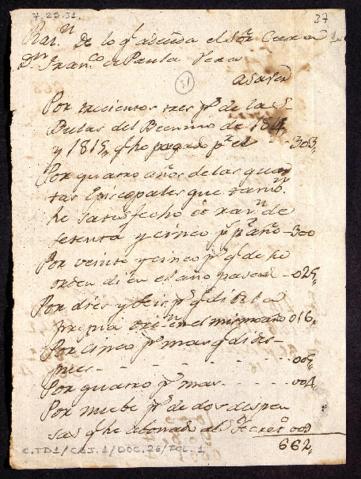 7.25.31.
37
Raz.n De lo q.e adeuda el Sor Cura
Dn Fran.co de Paula Vera
a saver
Por trecientos tres p.s de las
Bulas del Beennio de 1814,
y 1815, q.e he pagado p.r el -303,
Por quatro años de las quar
tas Episcopales que tamb.n
he satisfecho á raz.n de
setenta y cinco p.s p.r año -300
Por veinte y cinco p.s q.e de su
orden di en el año pasado -025,
Por dies y seis p.s q.e di de la
propia orn en el mismo año 016,
Por cinco p.s mas q.e di des
pues - - - - 005,
Por quatro p.s mas - - - 004
Por nuebe p.s de dos dispen
sas q.e he abonado al Secret.o 009
662,
C.TD1/CAJ.1/DOC.26/FOL.1